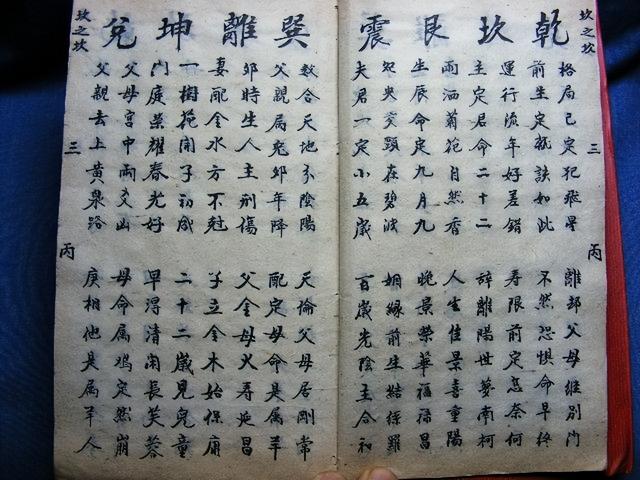 坎之坎 三 丙
乾 坎 艮 震
格局已定犯飛星 離邦父母維別門
前生定就訣如此 不然恐懼命早終
運行流年好差錯 壽限前定怎奈何
主定君命二十二 辭離陽世夢南柯
雨洒菊花自然香 人生佳景喜重陽
生辰命定九月九 晚景榮華福祿昌
央交頸在碧波 姻緣前生結絲羅
夫君一定小五歲 百歲光陰主合和
巽 離 坤 兌
数合天地分陰陽 天倫父母居剛常
父親属兔卯年降 配定母命是属羊
卯時生人主刑傷 父金母火壽延昌
妻配金水方不尅 子立金木始保康
一樹花開子初成 二十二歲見兒童
門庭榮耀春光好 早得清閑長芙蓉
父母宮中兩爻凶 母命属鸡定然崩
父親去上黃泉路 庚相他是属羊人
坎之坎 三 丙